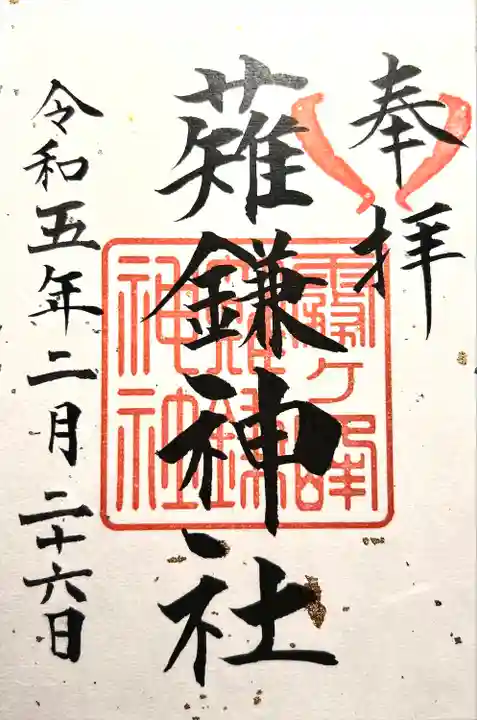 奉拝
薙鎌神社
霧ヶ峰
薙鎌
神社
令和五年二月二十六日